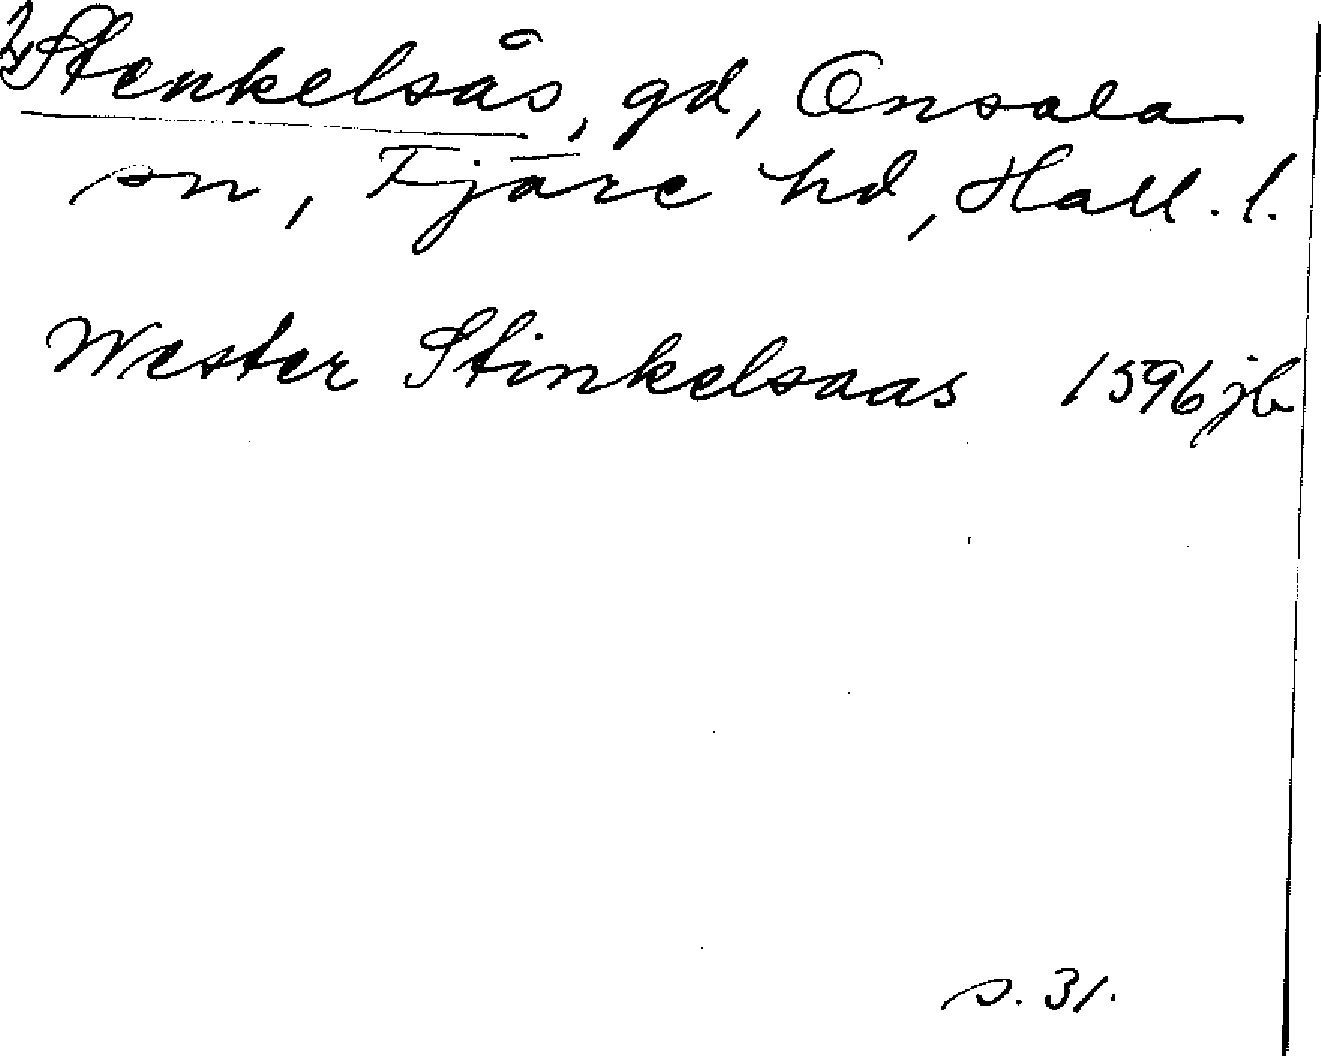 Stenkelsås, gd, Onsala
sn, Fjäre hd, Hall. l.
Wester Stinkelsaas 1596 jb
s. 31.